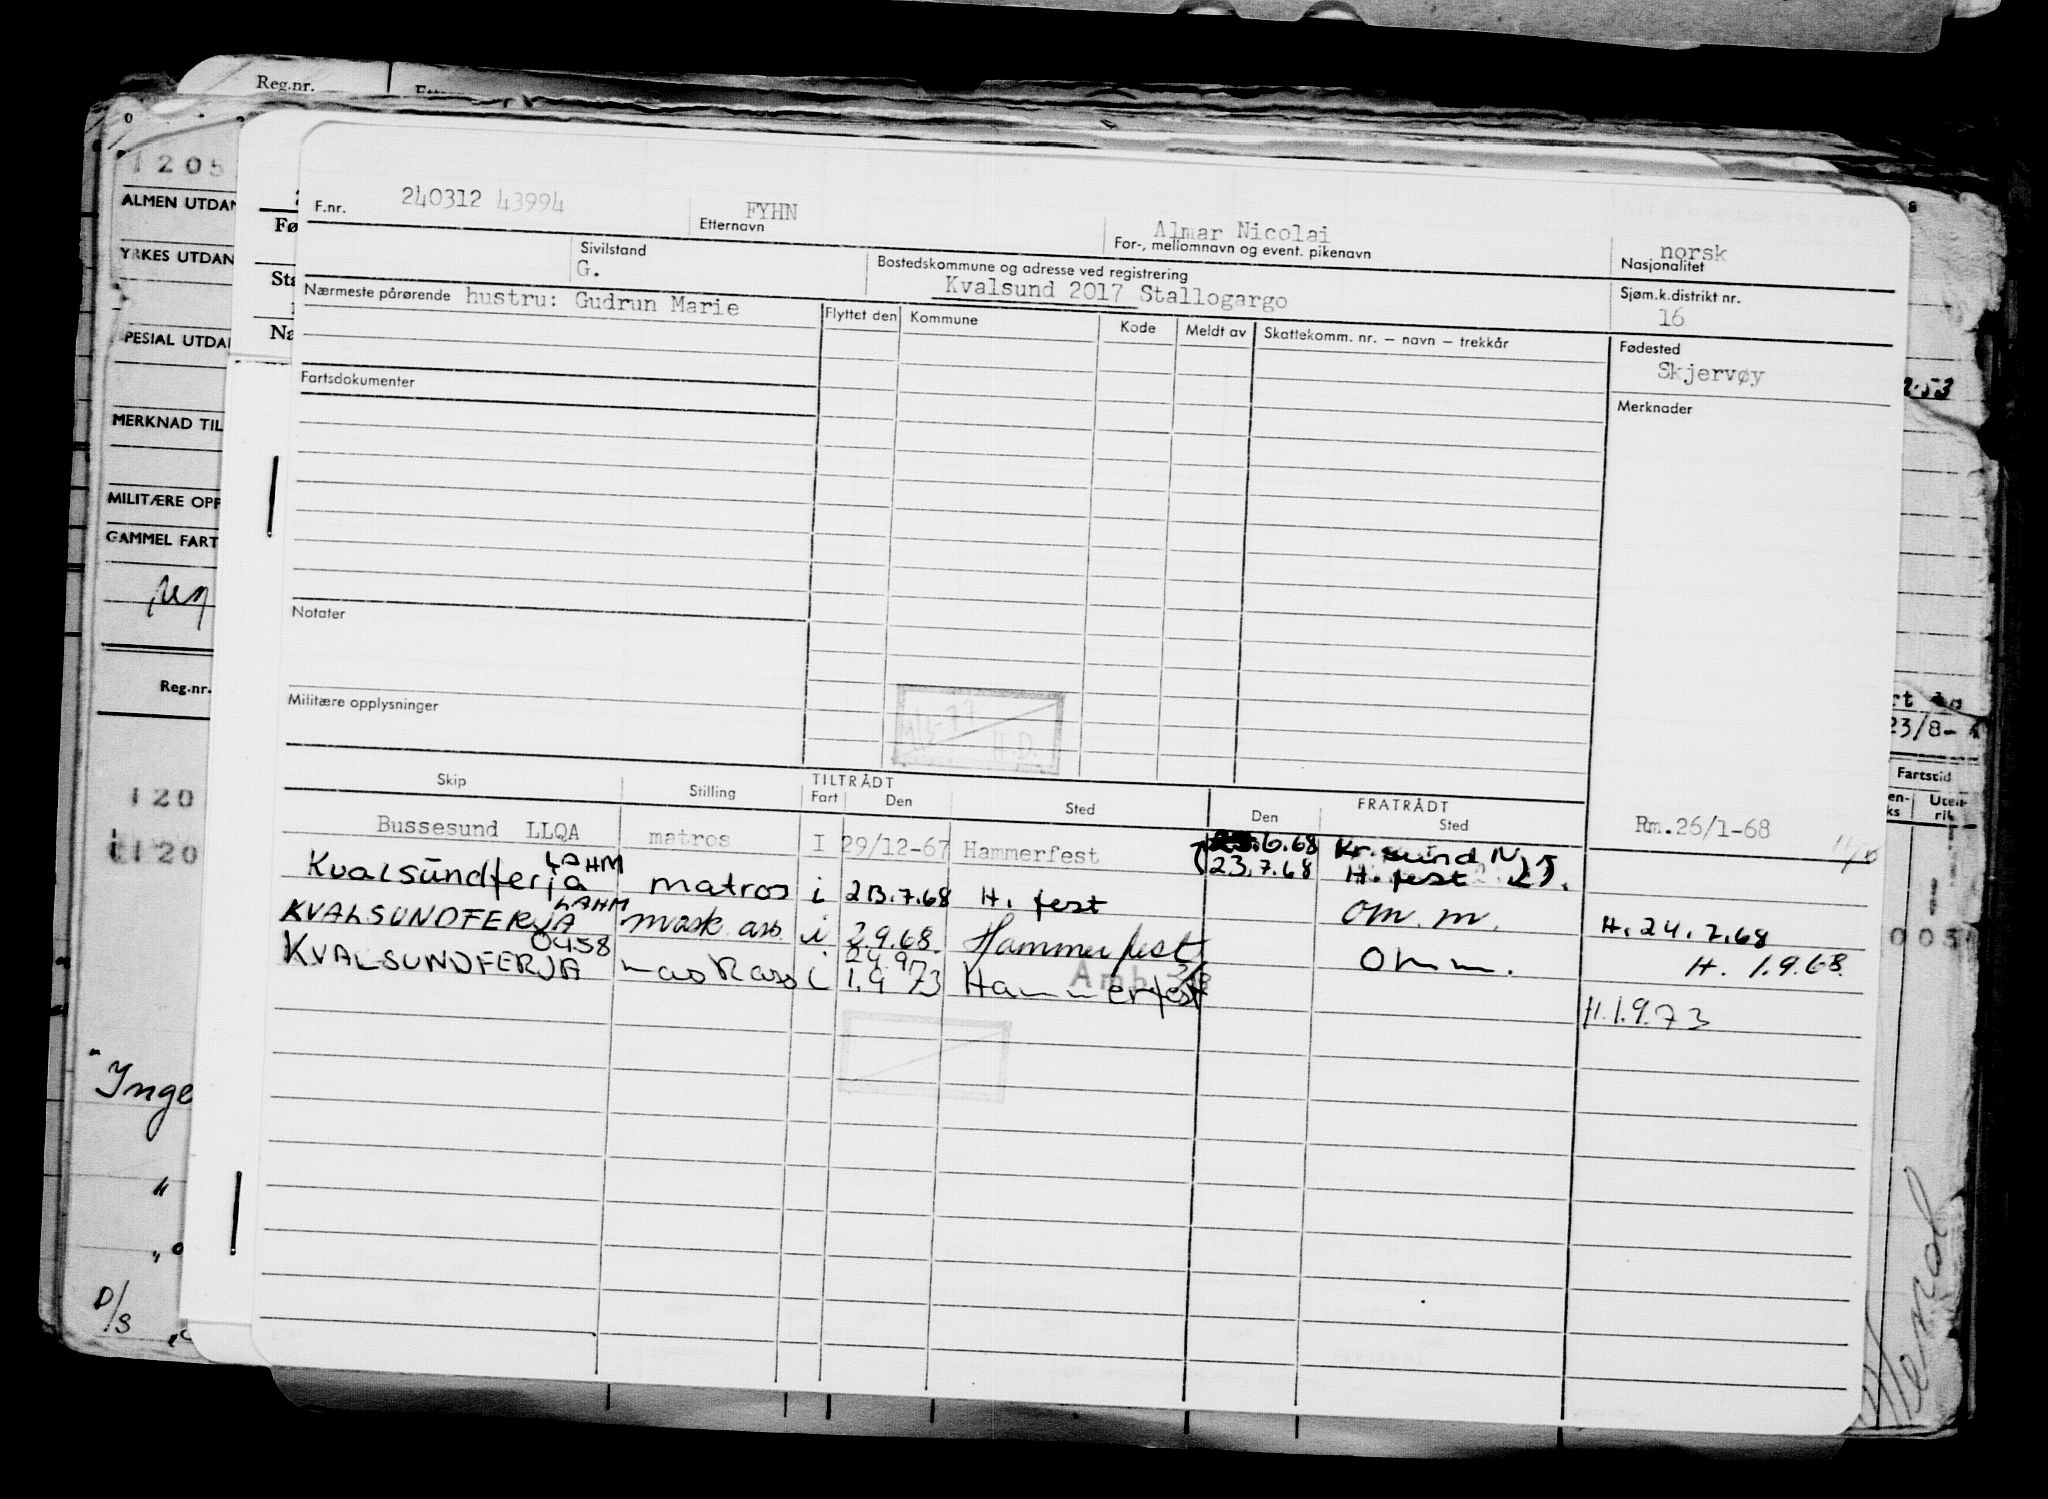 Reg.nr.
1205
ALMEN UTDAN
YRKES UTDAN
PESIAL UTDA
MERKNAD TIL
MILITÆRE OPP
GAMMEL FART
Reg.nr.
120
1120
"Inge
D/S
F.nr. 240312 43994
FYHN
Etternavn
Almar Nicolai
For-, mellomnavn og event. pikenavn
norsk
Nasjonalitet
Sivilstand
G.
Bostedskommune og adresse ved registrering
Kvalsund 2017 Stallogargo
Sjøm.k.distrikt nr.
16
Nærmeste pårørende hustru: Gudrun Marie
Flyttet den Kommune Kode Meldt av Skattekomm. nr. – navn – trekkår
Fødested
Skjervøy
Fartsdokumenter
Merknader
Notater
Militære opplysninger
H.D.
Skip Stilling TILTRÅDT Fart Den Sted FRATRÅDT Den Sted
Bussesund LLQA matros I 29/12-67 Hammerfest .6.68 Kr.sund N Rm.26/1-68
23.7.68 H. fest
Kvalsundferja LAHM matros i 23.7.68 H. fest om. m. H. 24.7.68
KVALSUNDFERJA LAHM mask ass. i 2.9.68. Hammerfest omm. H. 1.9.68.
KVALSUNDFERJA 0458 maskass i 1.9 73 Hammerfest H. 1.9.73
23/8-
Fartstid
Uten-
rik